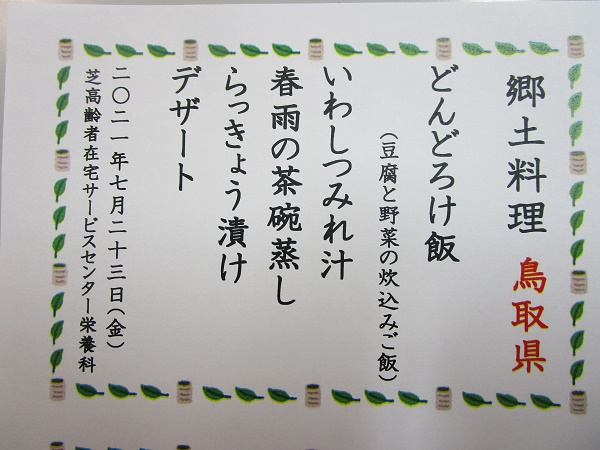 郷土料理 鳥取県
どんどろけ飯
(豆腐と野菜の炊込みご飯)
いわしつみれ汁
春雨の茶碗蒸し
らっきょう漬け
デザート
二〇二一年七月二十三日(金)
芝高齢者在宅サービスセンター栄養科